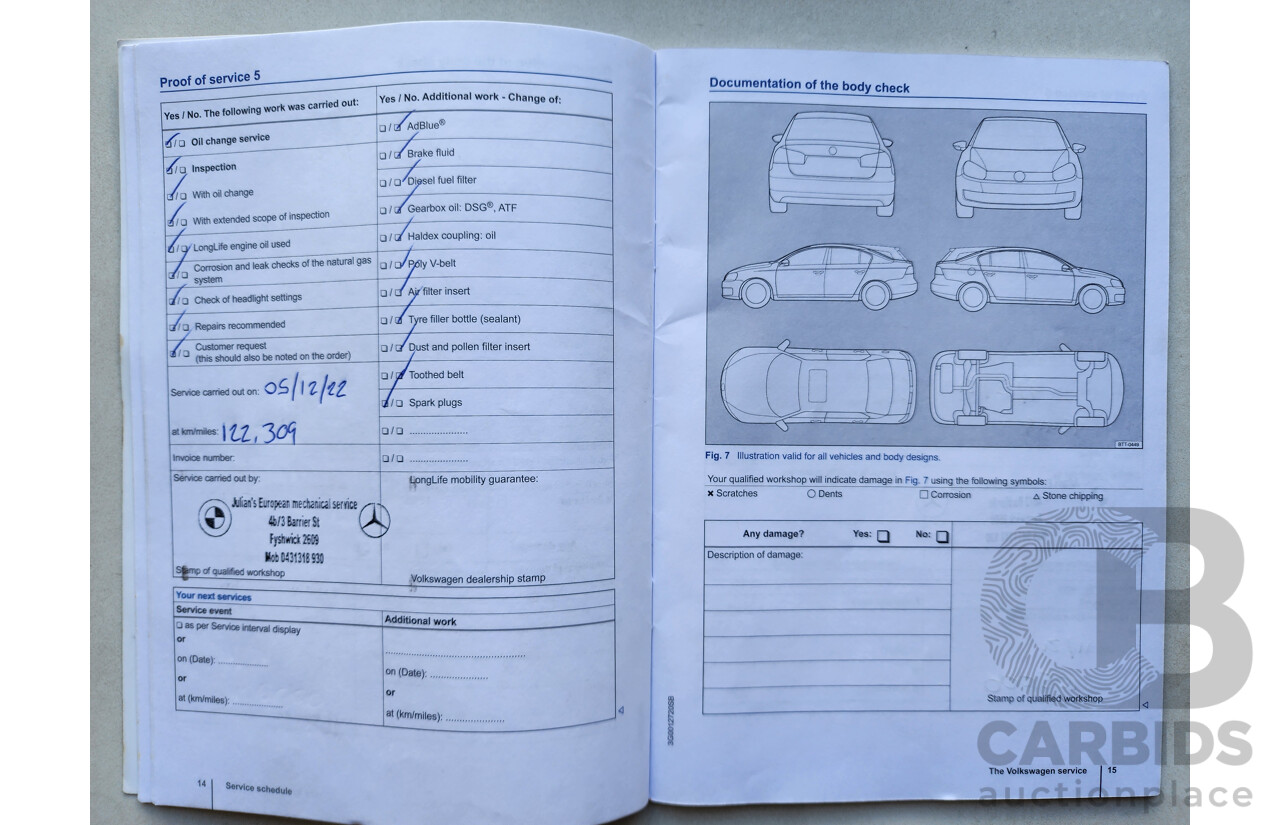 Proof of service 5
Yes / No. The following work was carried out:
☑/☐ Oil change service
☑/☐ Inspection
☑/☐ With oil change
☑/☐ With extended scope of inspection
☑/☐ LongLife engine oil used
☑/☐ Corrosion and leak checks of the natural gas
system
☑/☐ Check of headlight settings
☑/☐ Repairs recommended
☑/☐ Customer request
(this should also be noted on the order)
Service carried out on: 05/12/22
at km/miles: 122,309
Invoice number:
Service carried out by:
Julian's European mechanical service
4b/3 Barrier St
Fyshwick 2609
Mob 0431318 930
Stamp of qualified workshop
Yes / No. Additional work - Change of:
☐/☑ AdBlue®
☐/☑ Brake fluid
☐/☑ Diesel fuel filter
☐/☑ Gearbox oil: DSG®, ATF
☐/☑ Haldex coupling: oil
☐/☑ Poly V-belt
☐/☑ Air filter insert
☐/☑ Tyre filler bottle (sealant)
☐/☑ Dust and pollen filter insert
☐/☑ Toothed belt
☑/☐ Spark plugs
☐/☐ ....................
☐/☐ ....................
LongLife mobility guarantee:
Volkswagen dealership stamp
Your next services
Service event
☐ as per Service interval display
or
on (Date): .................
or
at (km/miles): .................
Additional work
................................................
on (Date): ....................
or
at (km/miles): ....................
14 Service schedule
Documentation of the body check
B7T-0449
Fig. 7 Illustration valid for all vehicles and body designs.
Your qualified workshop will indicate damage in Fig. 7 using the following symbols:
✖ Scratches ○ Dents ☐ Corrosion △ Stone chipping
Any damage? Yes: ☐ No: ☐
Description of damage:
Stamp of qualified workshop
3G0012720SB
The Volkswagen service 15
CARBIDS
auctionplace